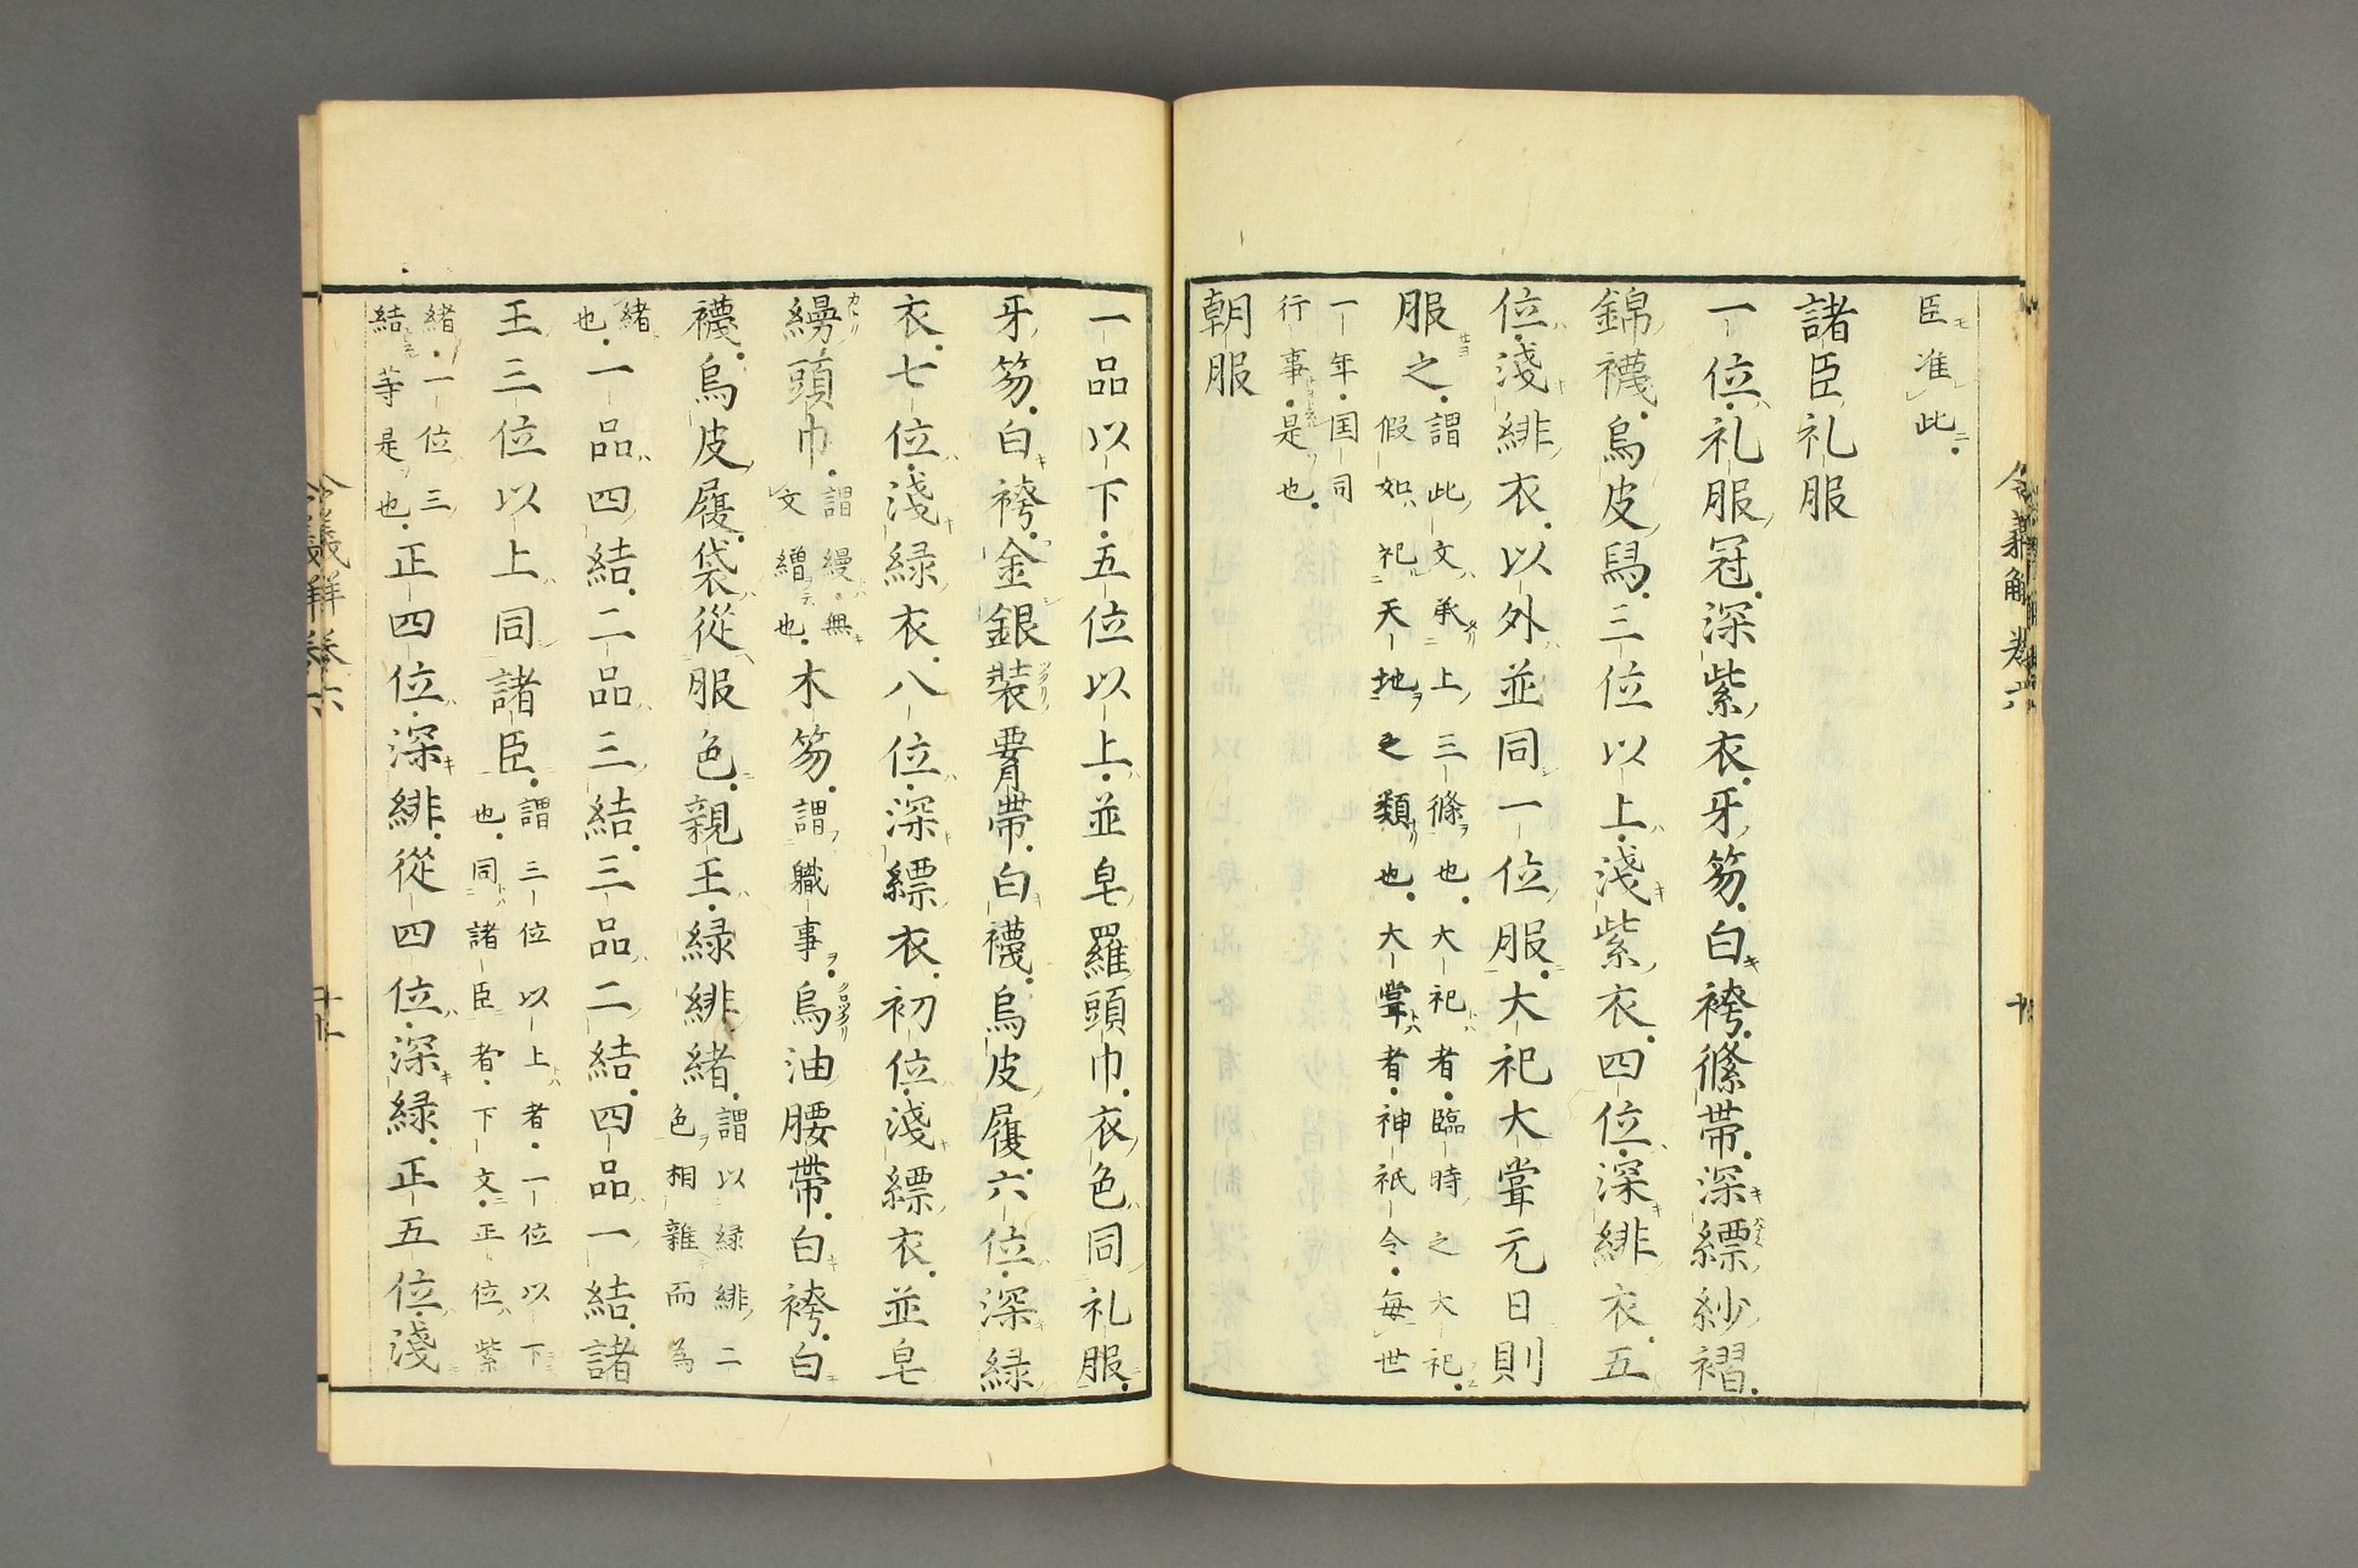 臣准此
諸臣礼服
一位礼服冠深紫衣牙笏白袴絛帯深縹紗褶
錦襪烏皮舄三位以上浅紫衣四位深緋衣五
位浅緋衣以外並同一位服大祀大甞元日則
服之
謂此文承上三條也大祀者臨時之大祀
假如祀天地之類也大甞者神祇令毎世
一年国司
行事是也
朝服
一品以下五位以上並皂羅頭巾衣色同礼服
牙笏白袴金銀装腰帯白襪烏皮履六位深緑
衣七位浅緑衣八位深縹衣初位浅縹衣並皂
縵頭巾
謂縵無
文繒也
木笏
謂職事
烏油腰帯白袴白
襪烏皮履袋從服色親王緑緋緒
謂以緑緋二
色相雜而為
緒
也
一品四結二品三結三品二結四品一結諸
王三位以上同諸臣
謂三位以上者一位以下
也同諸臣者下文正位紫
緒一位三
結等是也
正四位深緋從四位深緑正五位浅
令義解巻六
令義解巻六